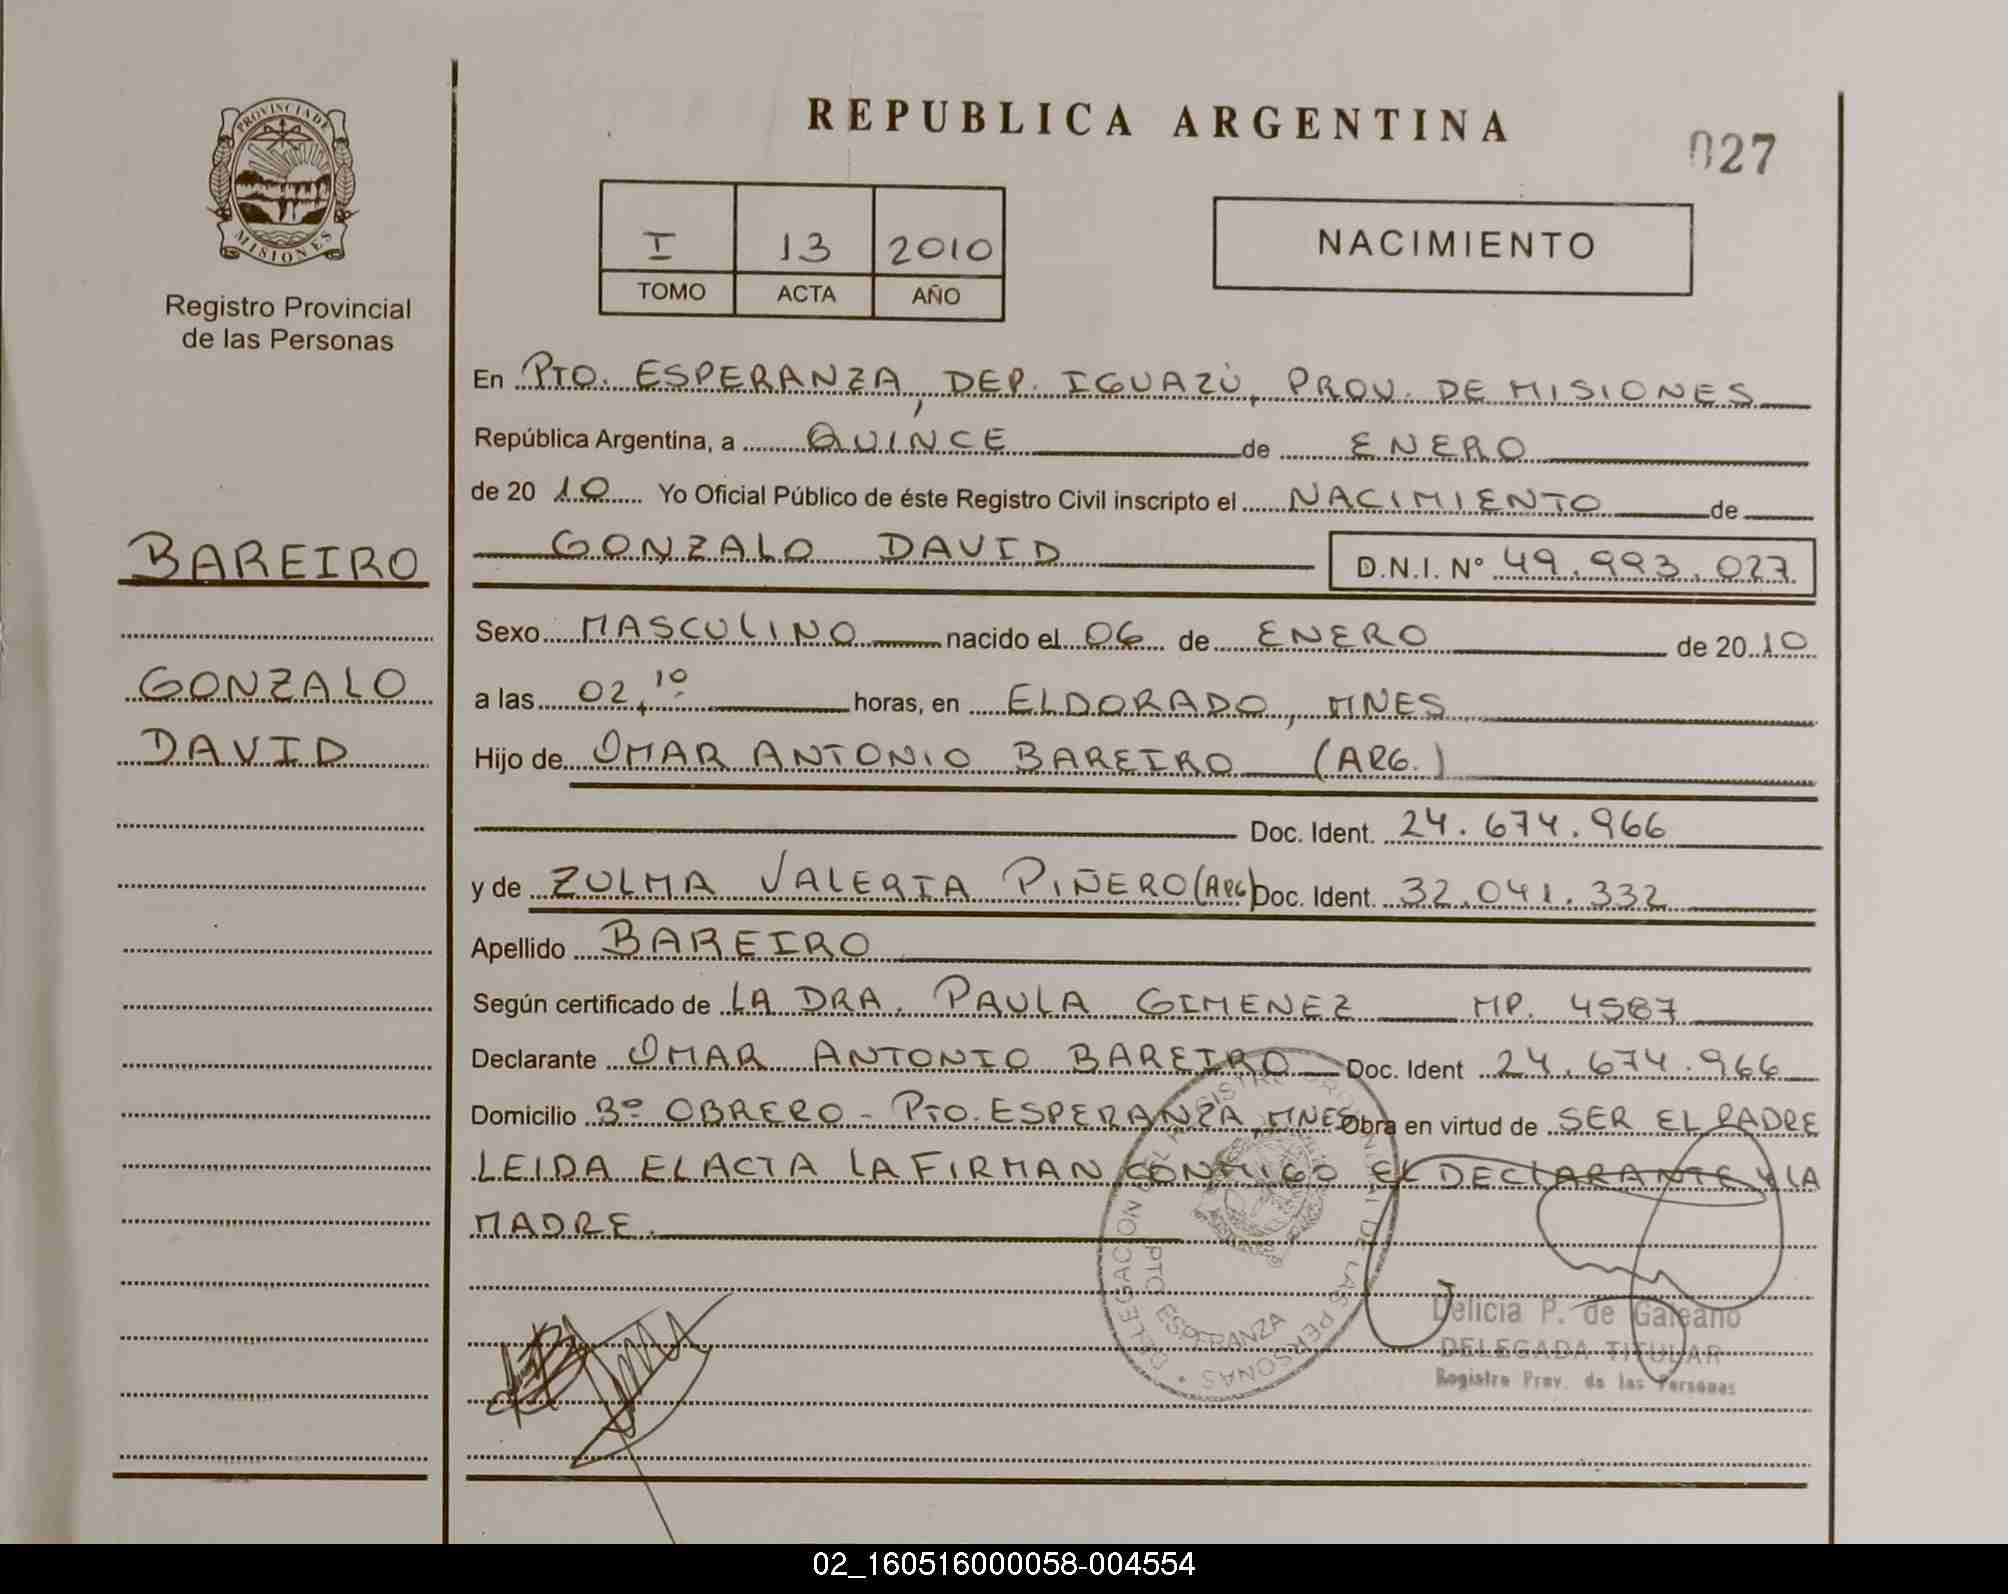 PROVINCIA DE
MISIONES
Registro Provincial
de las Personas
BAREIRO
GONZALO
DAVID
REPUBLICA ARGENTINA
027
I 13 2010
TOMO ACTA AÑO
NACIMIENTO
En PTO. ESPERANZA, DEP. IGUAZÚ, PROV. DE MISIONES
República Argentina, a QUINCE de ENERO
de 20 10 Yo Oficial Público de éste Registro Civil inscripto el NACIMIENTO de
GONZALO DAVID D.N.I. N° 49.993.027
Sexo MASCULINO nacido el 06 de ENERO de 20 10
a las 02,10 horas, en ELDORADO, MNES
Hijo de OMAR ANTONIO BAREIRO (ARG.)
Doc. Ident. 24.674.966
y de ZULMA VALERIA PIÑERO (ARG) Doc. Ident. 32.041.332
Apellido BAREIRO
Según certificado de LA DRA. PAULA GIMENEZ MP. 4587
Declarante OMAR ANTONIO BAREIRO Doc. Ident 24.674.966
Domicilio Bº OBRERO - PTO. ESPERANZA, MNES Obra en virtud de SER EL PADRE
LEIDA EL ACTA LA FIRMAN CONMIGO EL DECLARANTE Y LA
MADRE.
DELEGACION DEL REGISTRO PROVINCIAL DE LAS PERSONAS
PTO. ESPERANZA
Delicia P. de Galeano
DELEGADA TITULAR
Registro Prov. de las Personas
02_160516000058-004554